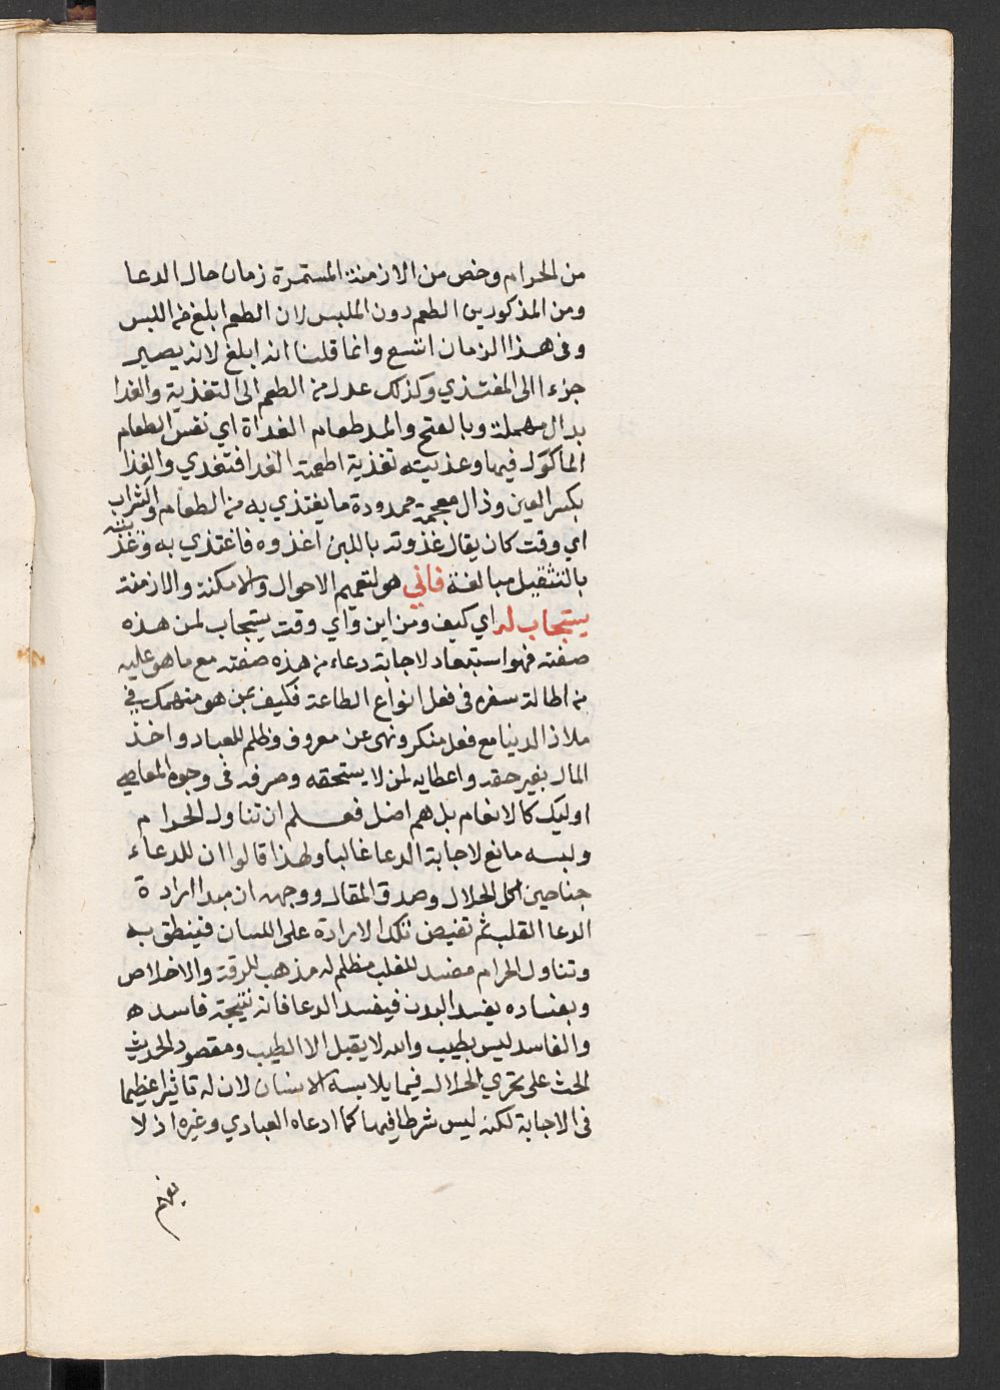 من الحرام وخص من الازمنة المستمرة زمان حال الدعا
ومن المذكورين الطعم دون الملبس لان الطعم ابلغ من اللبس
وفي هذا الزمان اتسع وانما قلنا انه ابلغ لانه يصير
جزءا الى المغتذي وكذلك عدل من الطعم الى التغذية والغدا
بدال مهملة وبالفتح والمد طعام الغداة اي نفس الطعام
الماكول فيها وغديته تغدية اطعمته الغدا فتغدي والغذا
بكسر الغين وذال معجمة ممدودة ما يغتذي به من الطعام والشراب
اي وقت كان يقال غذوته باللبن اغذوه فاغتذي به وغذيته
بالتثقيل مبالغة فاني هو لتعميم الاحوال والامكنة والازمنة
يستجاب له اي كيف ومن اين واي وقت يستجاب لمن هذه
صفته فهو استبعاد لاجابة دعاء من هذه صفته مع ما هو عليه
من اطالة سفره في فعل انواع الطاعة فكيف بمن هو منهمك في
ملاذ الدنيا مع فعل منكر ونهي عن معروف وظلم للعباد واخذ
المال بغير حقه واعطايه لمن لا يستحقه وصرفه في وجوه المعاصي
اوليك كالانعام بل هم اضل فعلم ان تناول الحرام
ولبسه مانع لاجابة الدعا غالبا ولهذا قالوا ان للدعاء
جناحين اكل الحلال وصدق المقال ووجهه ان مبدا ارادة
الدعا القلب ثم تفيض تلك الارادة على اللسان فينطق به
وتناول الحرام مفسد للقلب مظلم له مذهب للرقة والاخلاص
وبفساده يفسد البدن فيفسد الدعا فانه نتيجة فاسدة
والفاسد ليس بطيب والله لا يقبل الا الطيب ومقصود الحديث
الحث على تحري الحلال فيما يلابسه الانسان لان له تاثيرا عظيما
في الاجابة لكنه ليس شرطا فيها كما ادعاه العبادي وغيره اذ لا